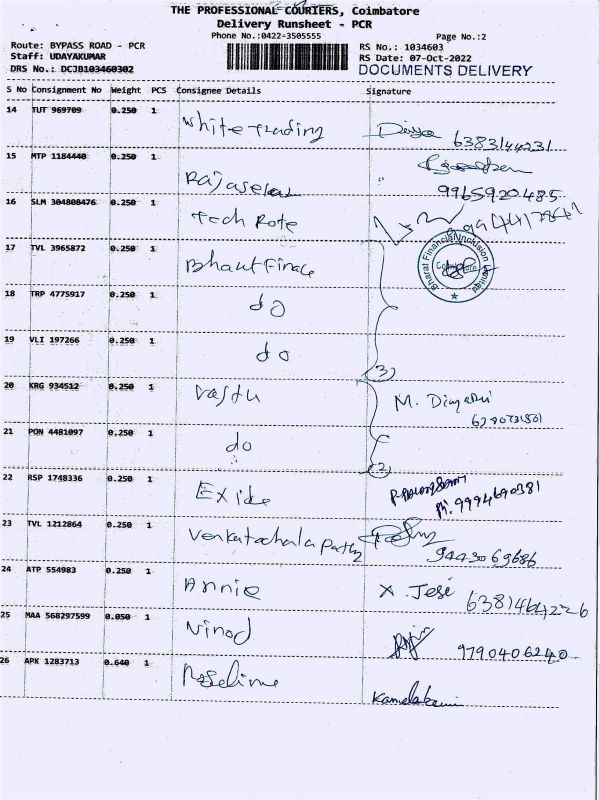 THE PROFESSIONAL COURIERS, Coimbatore
Delivery Runsheet - PCR
Phone No.:0422-3505555
Page No.:2
Route: BYPASS ROAD - PCR
RS No.: 1034603
Staff: UDAYAKUMAR
RS Date: 07-Oct-2022
DRS No.: DCJB103460302
DOCUMENTS DELIVERY
S No Consignment No Weight PCS Consignee Details Signature
14 TUT 969709 0.250 1 White trading 6383144231
15 MTP 1184440 0.250 1 Rajasekar 9965920485
16 SLM 304808476 0.250 1 Tech Rote
17 TVL 3965872 0.250 1 Bharat Finace
Bharat Financial Inclusion Limited
Coimbatore
18 TRP 4775917 0.250 1 do
19 VLI 197266 0.250 1 do
(3)
20 KRG 934512 0.250 1 Vastu M.
21 PON 4481097 0.250 1 do
(2)
22 RSP 1748336 0.250 1 Exide
Ph: 9994690381
23 TVL 1212864 0.250 1 Venkatachalapathy 9443069686
24 ATP 554983 0.250 1 Annie X. Jesé 6381464226
25 MAA 568297599 0.050 1 Vinod 9790406240
26 APK 1283713 0.640 1 Roseline